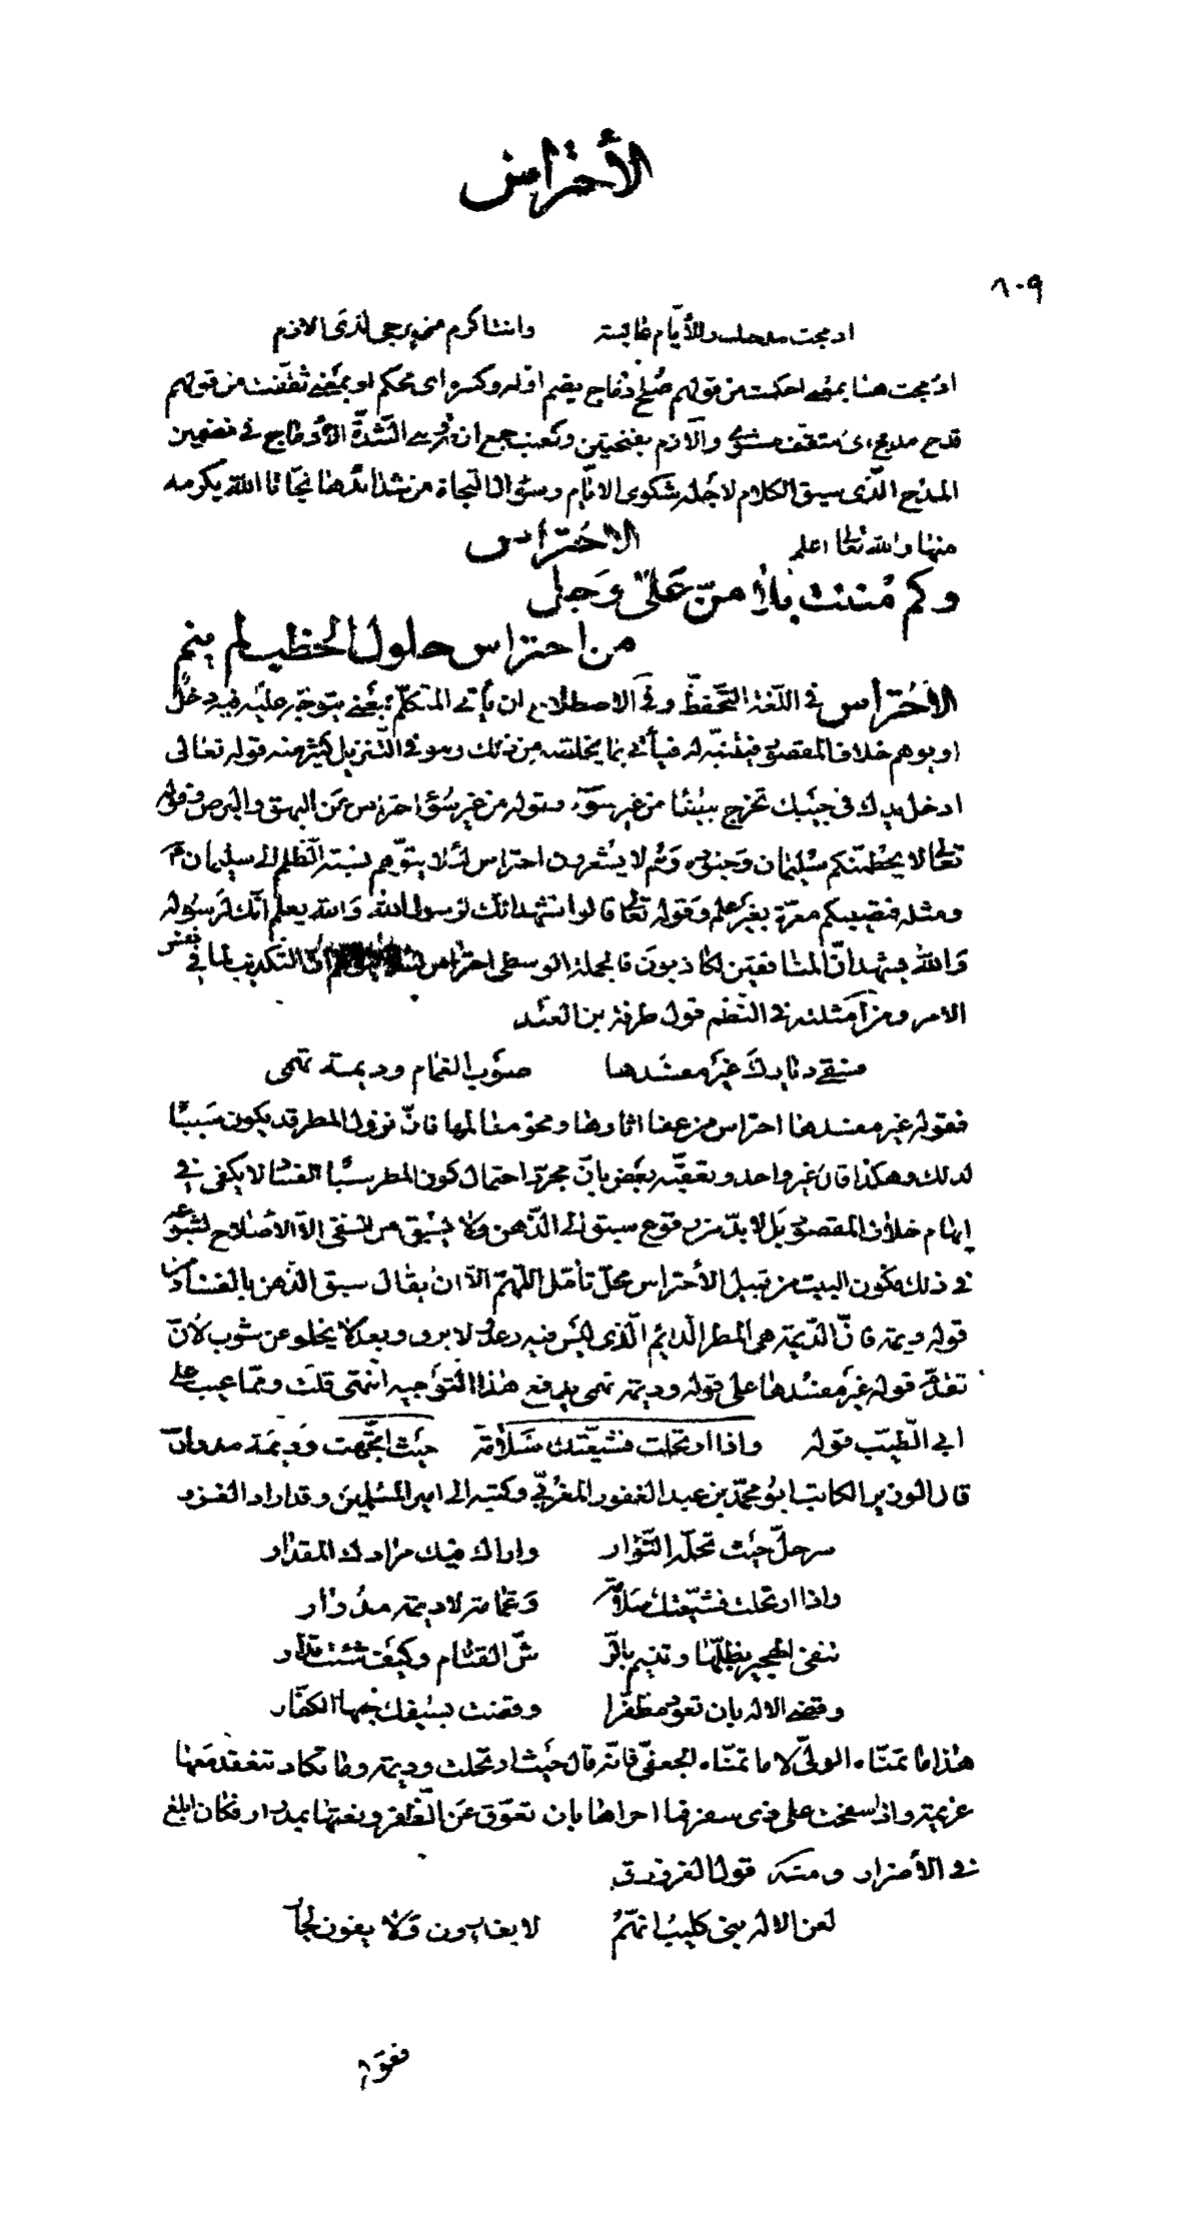 الأحتراس
٨٠٩
ادمجت مدحك والأيام عاتبة وانت اكرم من يرجى لذى الازم
ادمجت هنا بمعنى احكمت من قولهم صلح دماج بضم اوله وكسره اى محكم او بمعنى ثقفت من قولهم
قدح مدمج اى مثقف مستوى والازم بفتحتين وكعنب جمع ازمة وهى الشدة الأدماج في تضمين
المدح الذى سيق الكلام لاجله شكوى الايام وسؤال النجاة من شدائدها نجانا الله بكرمه
منها والله تعالى اعلم الاحتراس
وكم مننت بلا من على وجل
من احتراس حلول الخطب لم ينم
الاحتراس في اللغة التحفظ وفي الاصطلاح ان يأتى المتكلم بمعنى يتوجه عليه فيه دخل
او يوهم خلاف المقصود فيتنبه له فيأتى بما يخلصه من ذلك وهو في التنزيل كثير منه قوله تعالى
ادخل يدك في جيبك تخرج بيضا من غير سوء فقوله من غير سوء احتراس عن البهق والبرص وقوله
تعالى لا يحطمنكم سليمان وجنوده وهم لا يشعرون احتراس لئلا يتوهم نسبة الظلم الى سليمان
ومثله فتصيبكم معرة بغير علم وقوله تعالى قالوا نشهد انك لرسول الله والله يعلم انك لرسوله
والله يشهد ان المنافقين لكاذبون فالجملة الوسطى احتراس لئلا ان التكذيب لما في نفس
الامر ومن امثلته في النظم قول طرفة بن العبد
فسقى ديارك غير مفسدها صوب الغمام وديمة تهمى
فقوله غير مفسدها احتراس من عفا اثارها ومحو معالمها فان نزول المطر قد يكون سببا
لذلك وهكذا قال غير واحد وتعقبه بعض بان مجرد احتمال كون المطر سببا الفساد لا يكفى في
ايهام خلاف المقصود بل لا بد من وقوع سبق الى الذهن ولا يسبق من السقى الا الأصلاح لشيوعه
في ذلك فكون البيت من قبيل الأحتراس محل تأمل اللهم الا ان يقال سبق الذهن بالفساد من
قوله ديمة فان الديمة هى المطر الدائم الذى ليس فيه رعد ولا برق وبعد لا يخلو عن شوب لان
تقدم قوله غير مفسدها على قوله وديمة تهمى يدفع هذا التوجيه انتهى قلت ومما عيب على
ابي الطيب قوله واذا ارتحلت فشيعتك سلامة حيث اتجهت وديمة مدرار
قال الوزير الكاتب ابو محمد بن عبد الغفور المغربي وكتبه الى امير المسلمين وقد اراد الغزو
سر حل حيث تحله النوار واراك فيك مرادك المقدار
واذا ارتحلت فشيعتك سلامة وغمامة لا ديمة مدرار
تنفى الهجير بظلها وتنيم بالر ش القتام وكيف شئت تدار
وقضى الاله بان تعود مظفرا وقضت بسيفك نحبها الكفار
هذا ما تمناه الولى لا ما تمناه الجعفى فانه قال حيث ارتحلت وديمة وما تكاد تنفعد معها
عزيمة واذا سفحت على ذى سفر فما احراها بان تعوق عن الظفر ونعتها بمدرار فكان ابلغ
في الأضرار ومثله قول الفرزدق
لعن الاله بنى كليب انهم لا يغدرون ولا يفون لجار
فقوله